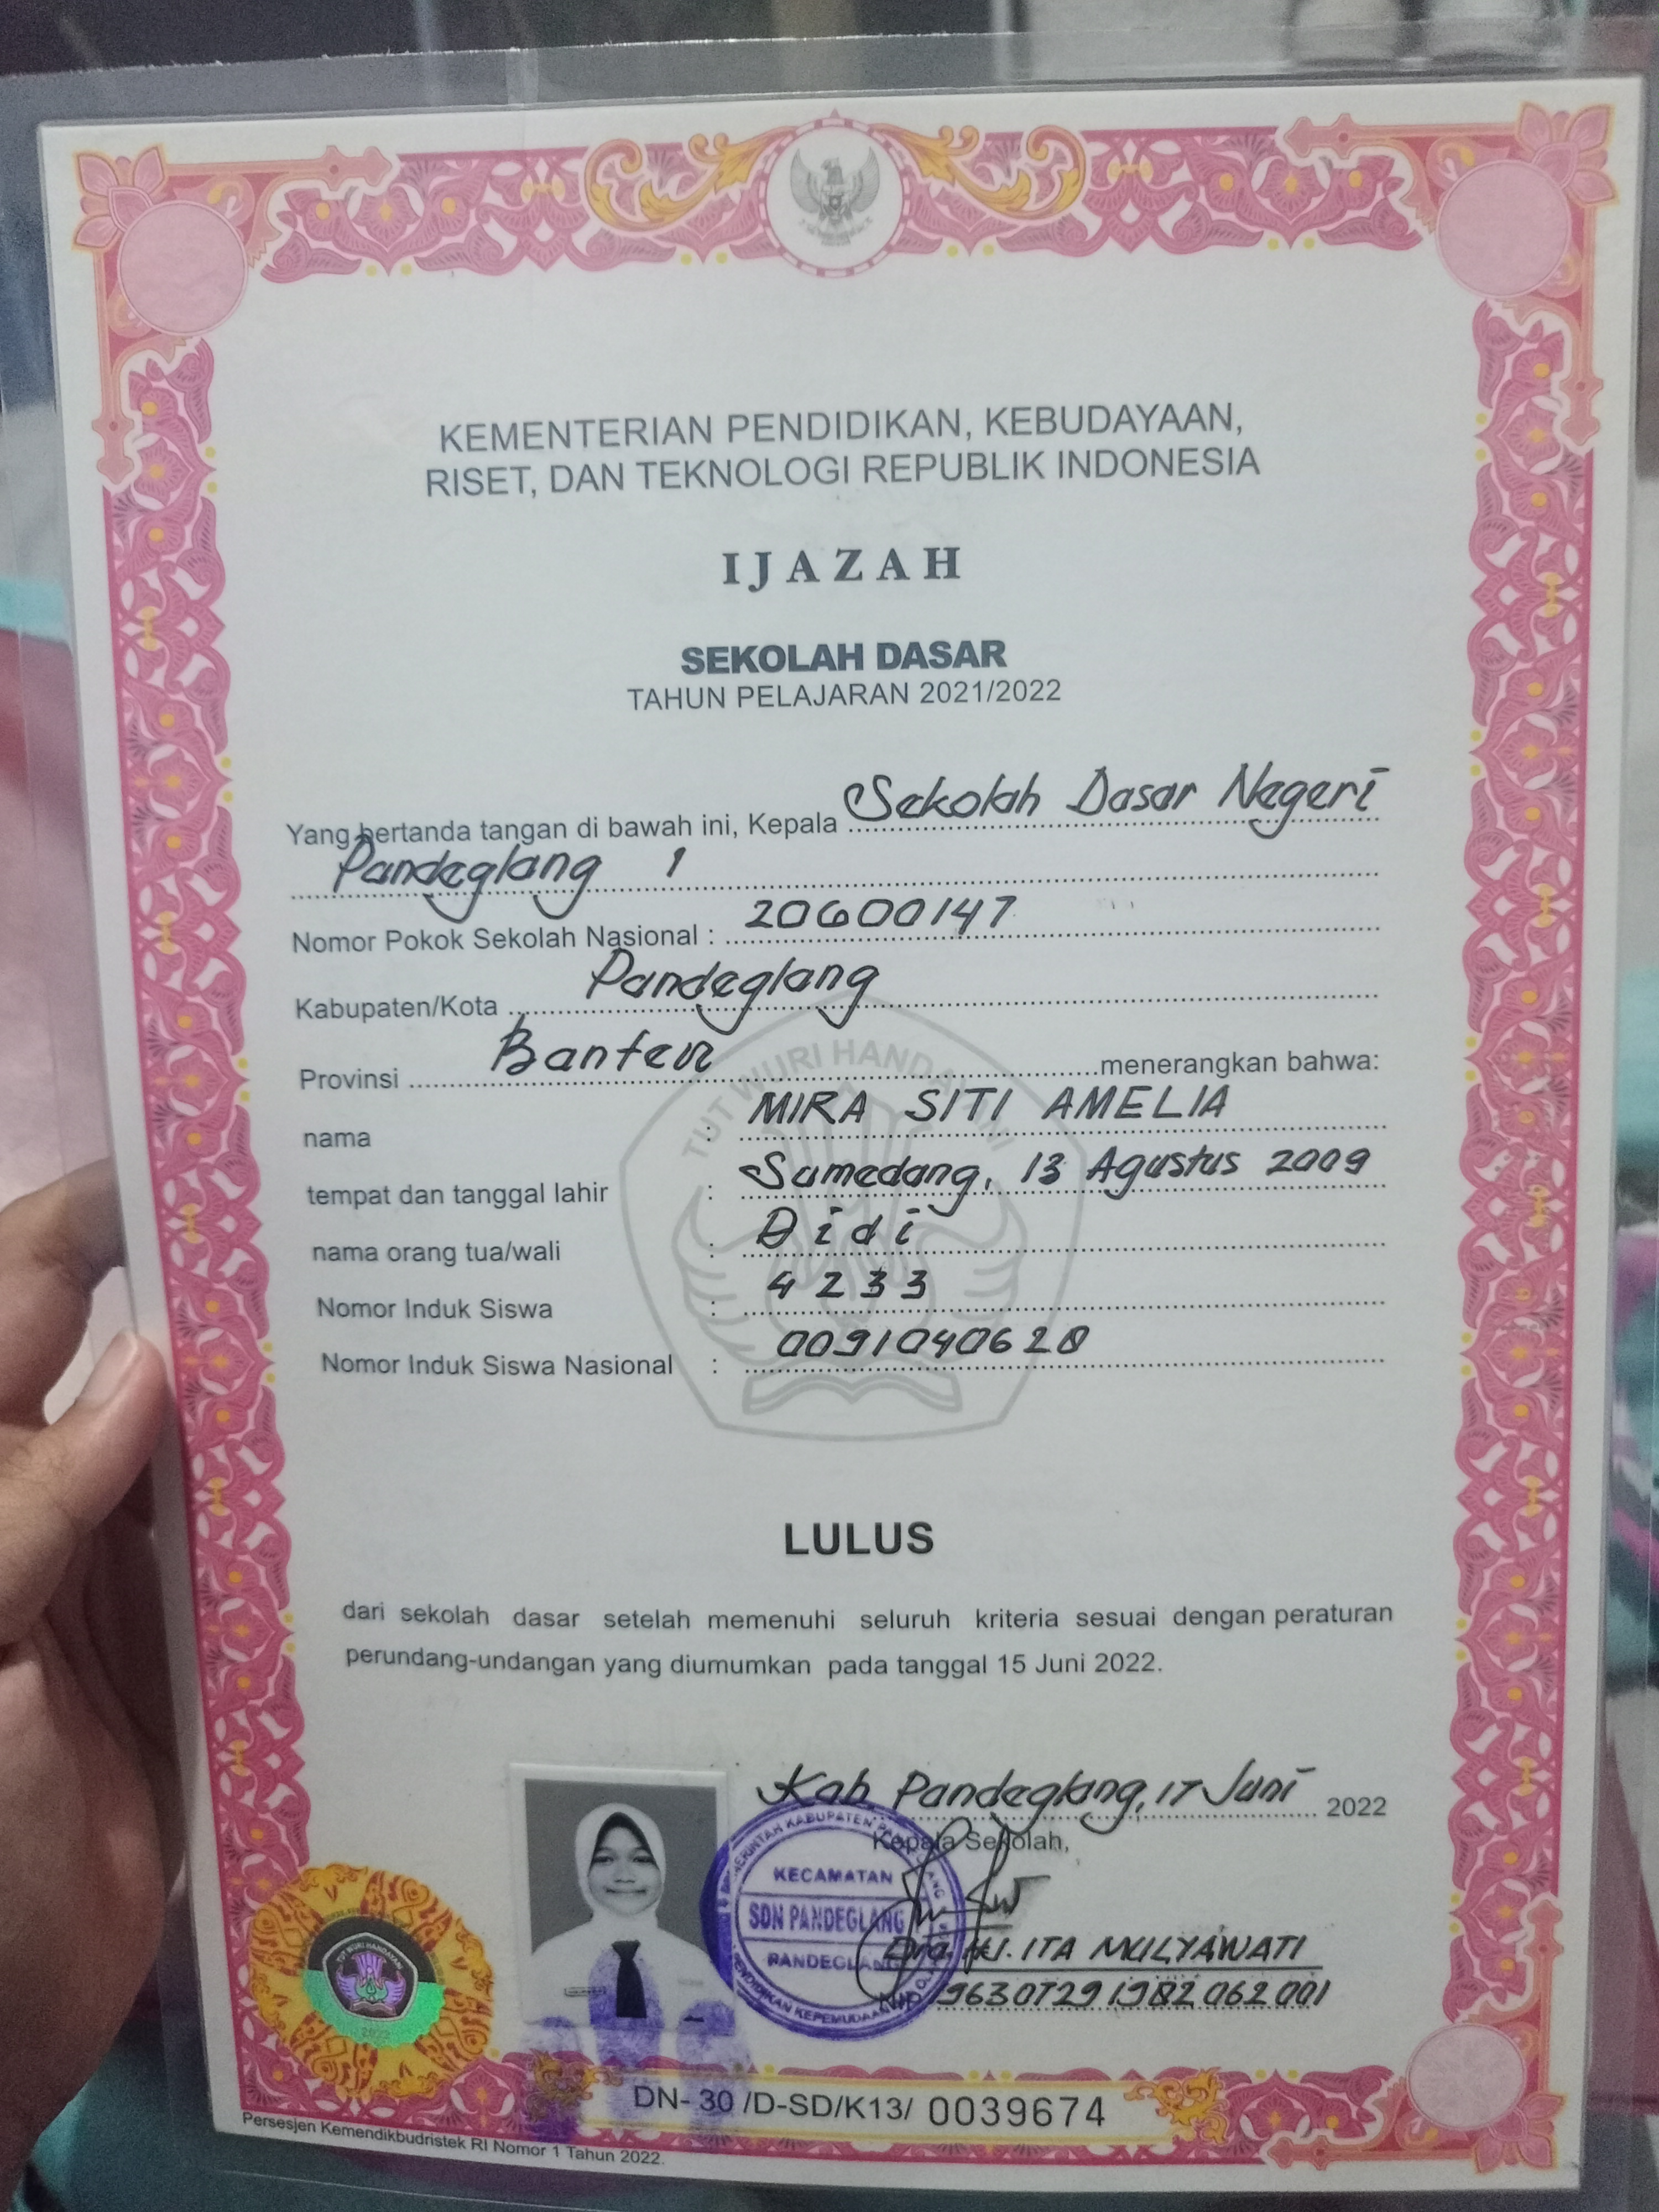 KEMENTERIAN PENDIDIKAN, KEBUDAYAAN,
RISET, DAN TEKNOLOGI REPUBLIK INDONESIA
IJAZAH
SEKOLAH DASAR
TAHUN PELAJARAN 2021/2022
Yang bertanda tangan di bawah ini, Kepala Sekolah Dasar Negeri
Pandeglang 1
Nomor Pokok Sekolah Nasional : 20600147
Kabupaten/Kota Pandeglang
Provinsi Banten menerangkan bahwa:
nama : MIRA SITI AMELIA
tempat dan tanggal lahir : Sumedang, 13 Agustus 2009
nama orang tua/wali : Didi
Nomor Induk Siswa : 4233
Nomor Induk Siswa Nasional : 0091040628
TUT WURI HANDAYANI
LULUS
dari sekolah dasar setelah memenuhi seluruh kriteria sesuai dengan peraturan
perundang-undangan yang diumumkan pada tanggal 15 Juni 2022.
Kab. Pandeglang, 17 Juni 2022
Kepala Sekolah,
KECAMATAN
SDN PANDEGLANG
PANDEGLANG
Dra. Hj. ITA MULYAWATI
NIP 196307291982062001
TUT WURI HANDAYANI
2022
DN- 30 /D-SD/K13/ 0039674
Persesjen Kemendikbudristek RI Nomor 1 Tahun 2022.